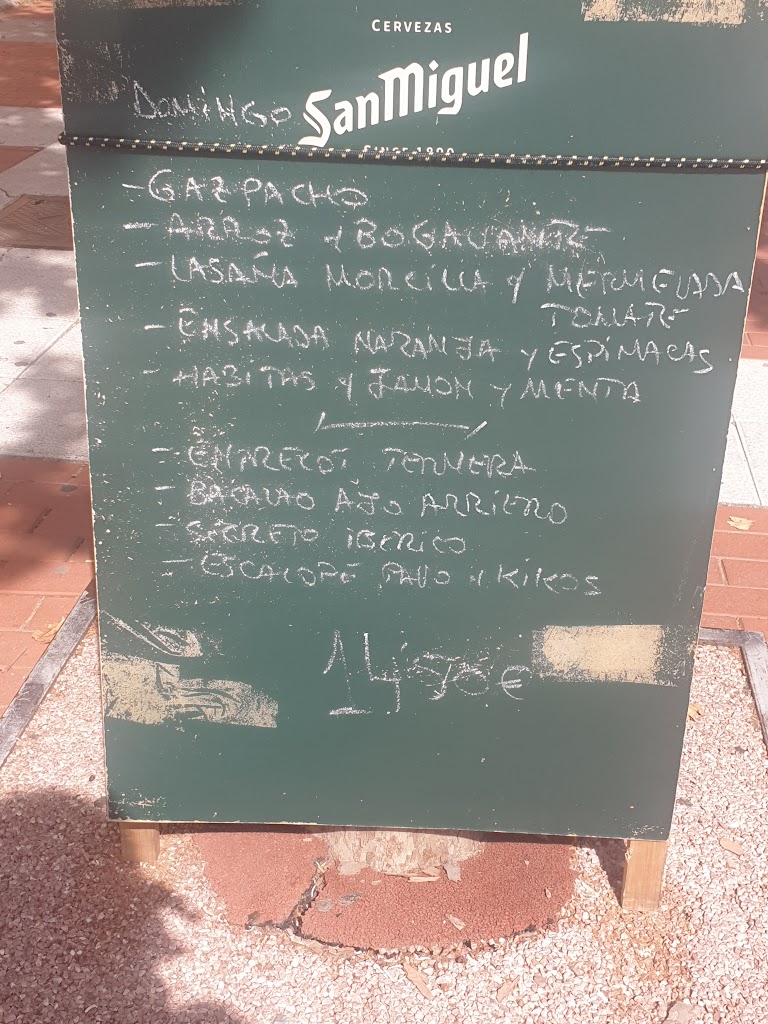 CERVEZAS
SanMiguel
DOMINGO
SINCE 1890
- GAZPACHO
- ARROZ y BOGAVANTE
- LASAÑA MORCILLA y MERMELADA
TOMATE
- ENSALADA NARANJA y ESPINACAS
- HABITAS y JAMON y MENTA
- ENTRECOT TERNERA
- BACALAO AJO ARRIERO
- SECRETO IBERICO
- ESCALOPE PAVO y KIKOS
€